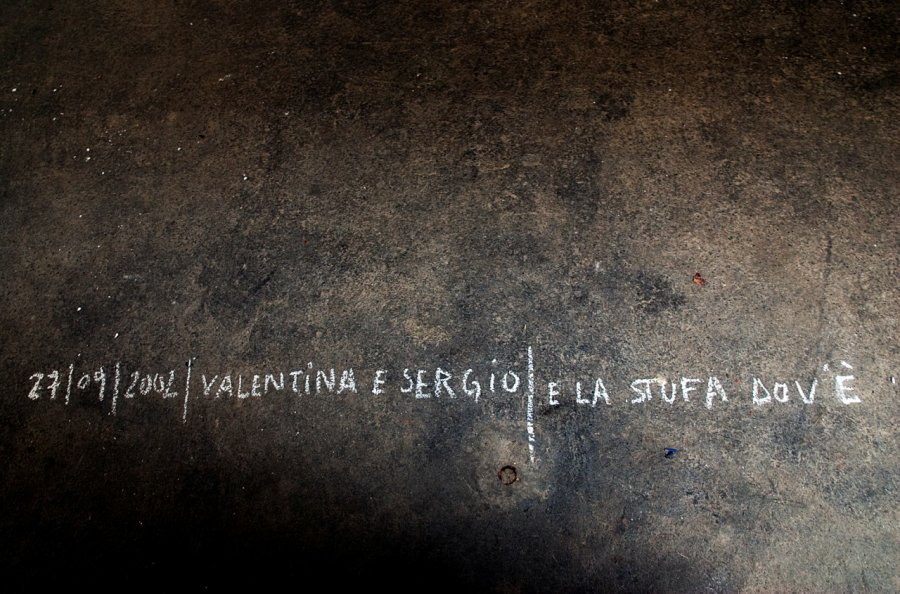 27/09/2002/VALENTINA E SERGIO/E LA STUFA DOV'È